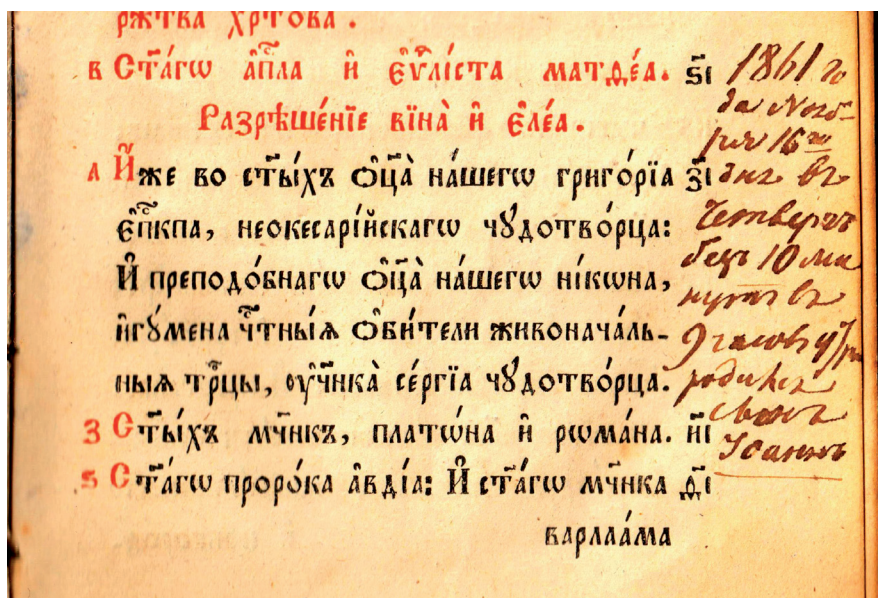 рж҃тва хр҃това.
в Ст҃а́гѡ а҆п҃ла и҆ є҆ѵⷢ҇лі́ста матѳе́а. ѕ҃і
Разрѣше́нїе вїна̀ и҆ є҆ле́а.
л И҆́же во ст҃ы́хъ ѻ҆ц҃а̀ на́шегѡ григо́рїа з҃і
є҆пⷭ҇кпа, неокесарі́йскагѡ чꙋдотво́рца:
И҆ преподо́бнагѡ ѻ҆ц҃а̀ на́шегѡ ні́кѡна,
и҆гꙋ́мена чⷭ҇тны́ѧ ѻ҆би́тели живонача́ль-
ныѧ трⷪ҇цы, ᲂу҆чн҃ка̀ се́ргїа чꙋдотво́рца.
з Ст҃ы́хъ мч҃нкъ, плато́на и҆ рѡма́на. и҃і
ѕ Ст҃а́гѡ проро́ка а҆вді́а: И҆ ст҃а́гѡ мч҃нка ѳ҃і
варлаа́ма
1861 го
да Нояб-
ря 16го
дня въ
Четвергъ
безъ 10 ми
нутъ въ
9 часовъ утра
родился
сынъ
Іоаннъ